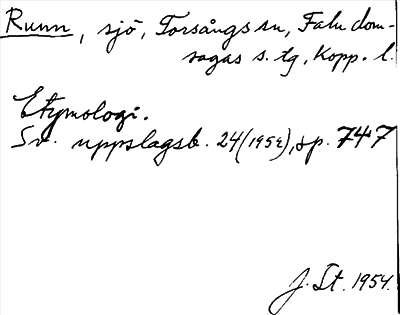 Runn, sjö, Torsångs sn, Falu dom-
sagas s. tg, Kopp. l.
Etymologi.
Sv. uppslagsb. 24 (1952), sp. 747
J. St. 1954.